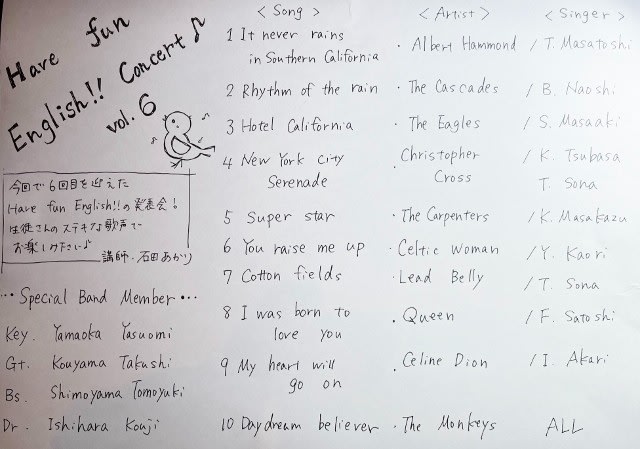 Have fun
English!! Concert♪
vol. 6
今回で6回目を迎えた
Have fun English!!の発表会!
生徒さんのステキな歌声で
お楽しみ下さい♪
講師・石田あかり
... Special Band Member ...
Key. Yamaoka Yasuomi
Gt. Kouyama Takushi
Bs. Shimoyama Tomoyuki
Dr. Ishihara Kouji
<Song> <Artist> <Singer>
1 It never rains
in Southern California · Albert Hammond / T. Masatoshi
2 Rhythm of the rain · The Cascades / B. Naoshi
3 Hotel California · The Eagles / S. Masaaki
4 New York City · Christopher / K. Tsubasa
Serenade Cross T. Sona
5 Super star · The Carpenters / K. Masakazu
6 You raise me up · Celtic Woman / Y. Kaori
7 Cotton fields · Lead Belly / T. Sona
8 I was born to · Queen / F. Satoshi
love you
9 My heart will · Celine Dion / I. Akari
go on
10 Daydream believer · The Monkeys ALL